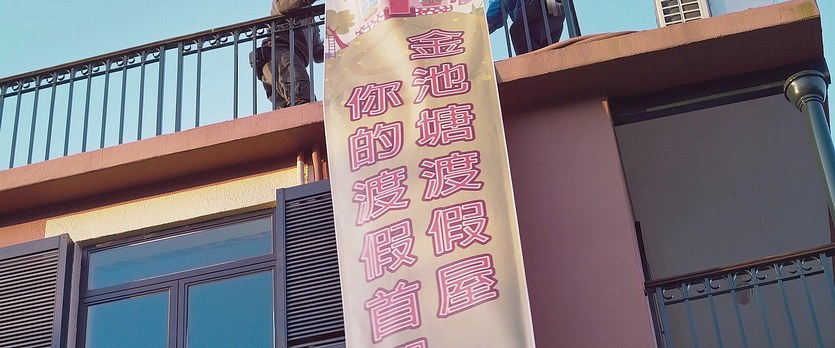 金池塘渡假屋
你的渡假首